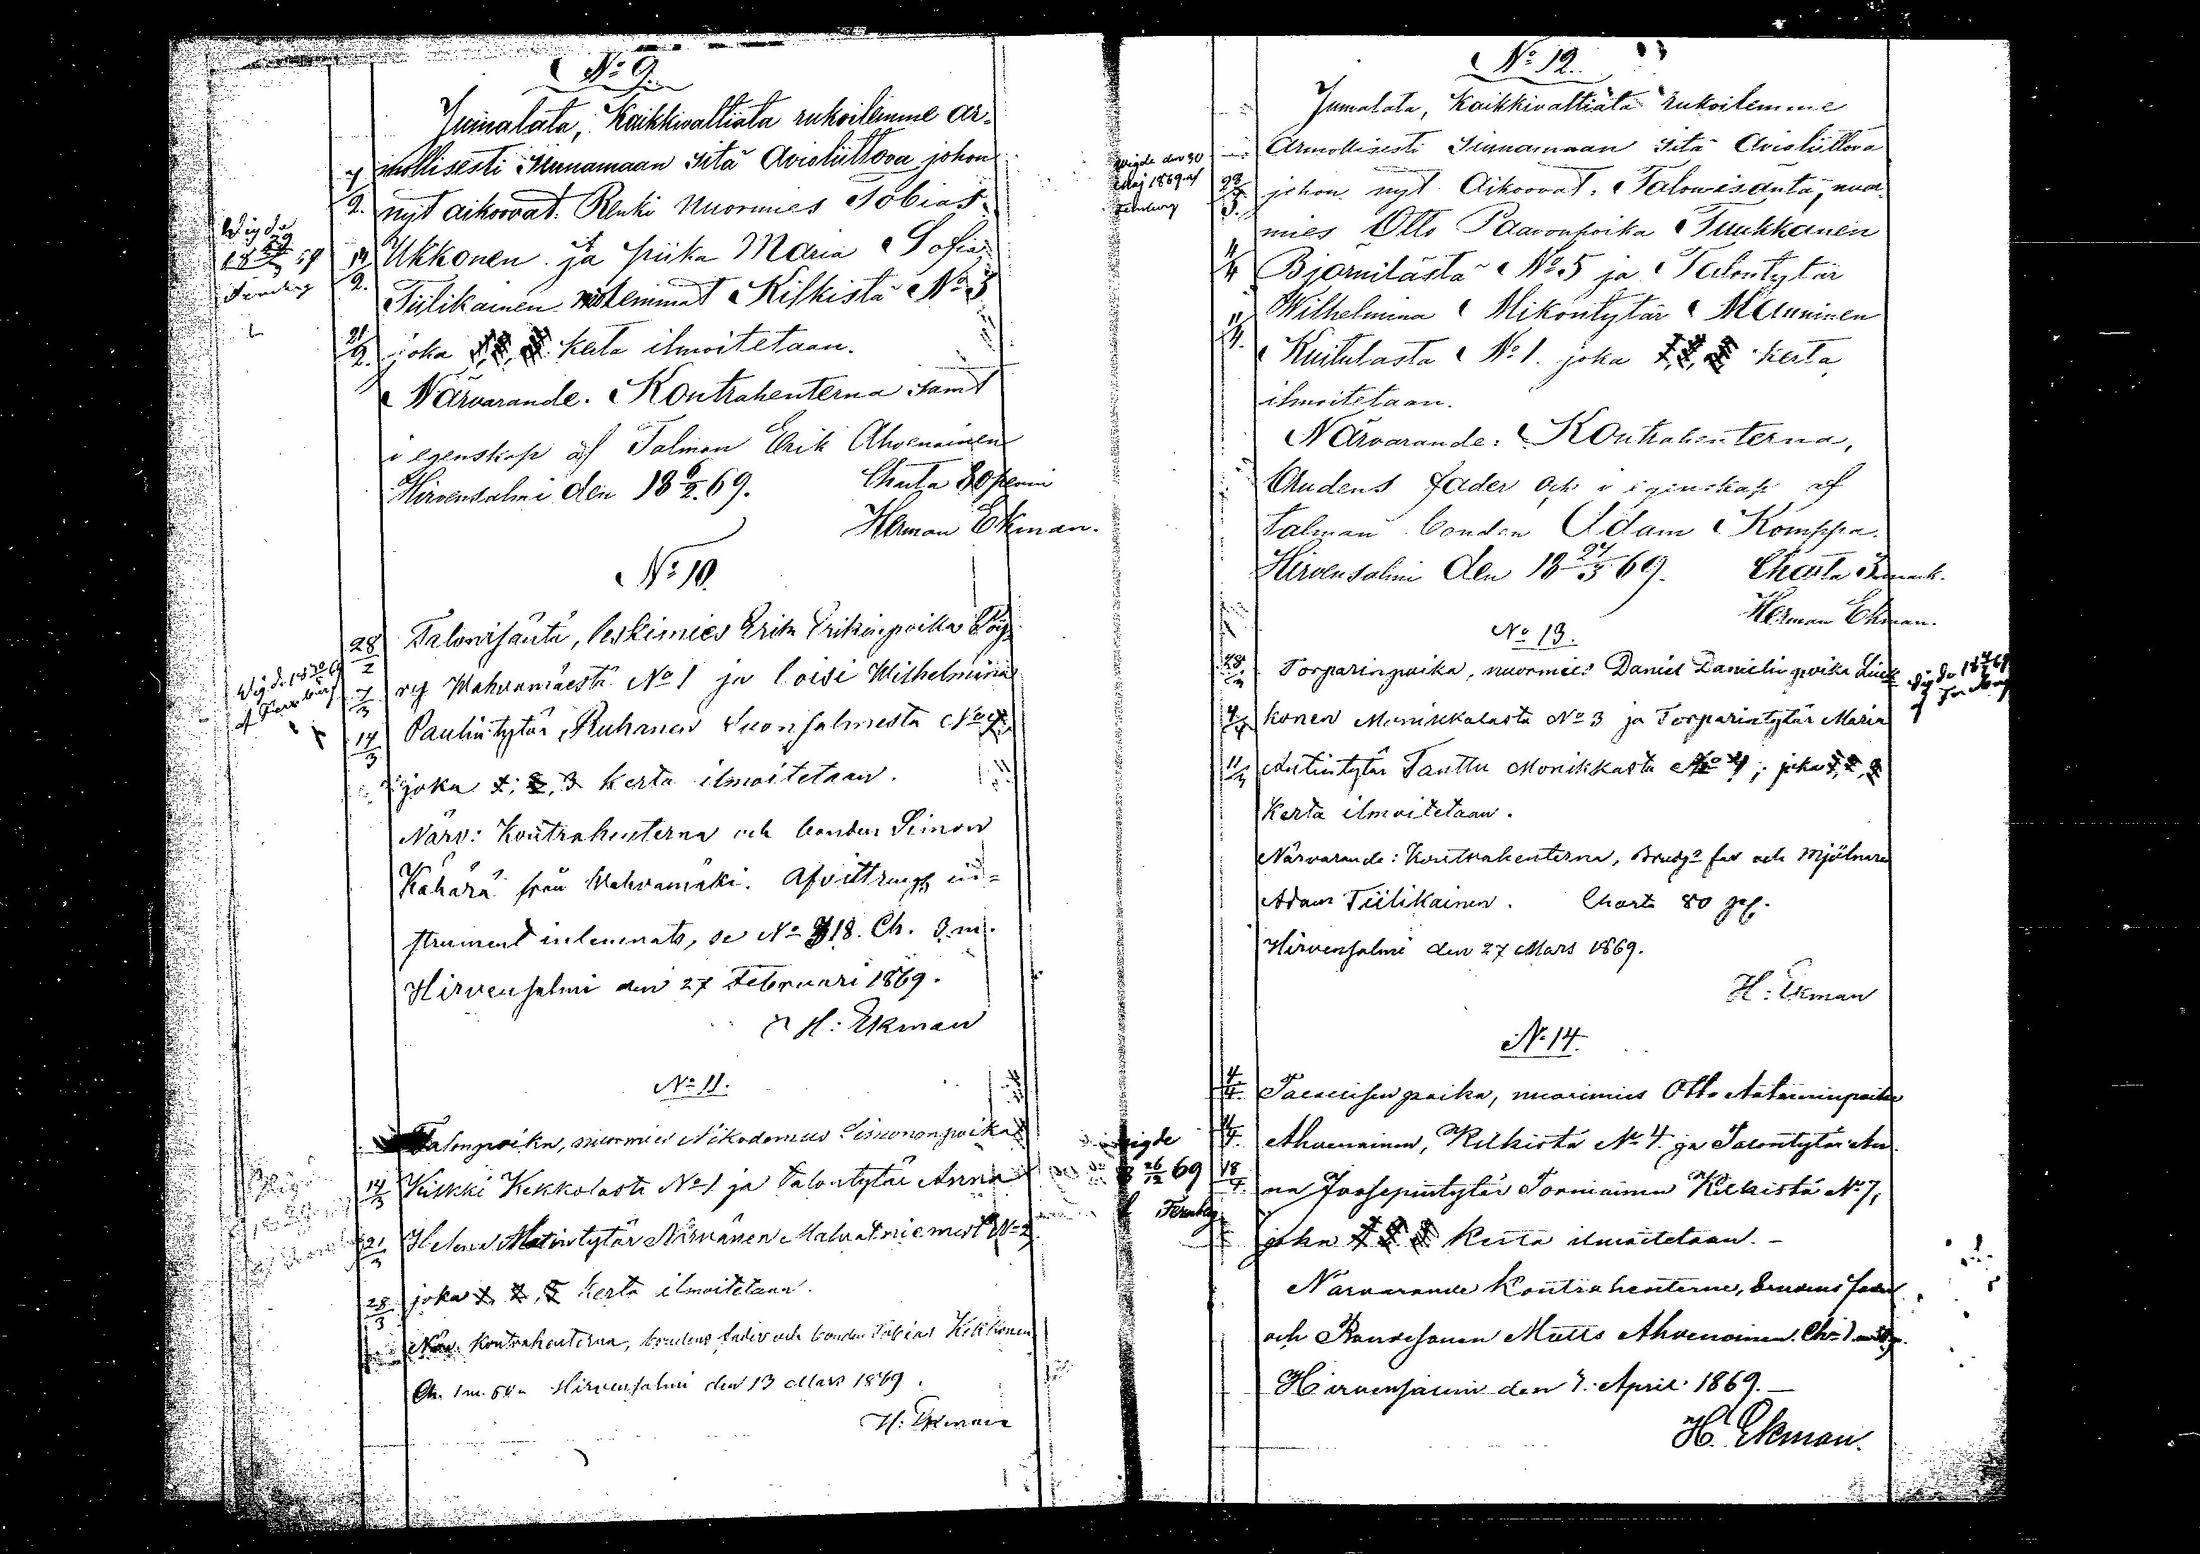 No 9.
Jumalata, Kaikkivaltiata rukoilemme ar-
mollisesti Siunamaan sitä Avioliittova johon
7/2. nyt aikoovat. Renki nuormies Tobias
14/2. Ukkonen ja piika Maria Sofia
Tiilikainen molemmat Kilkistä No 3
21/2. joka kerta ilmoitetaan.
Närvarande. Kontrahenterna samt
i egenskap af Talman Erik Ahvenainen
Hirvensalmi den 18 6/2. 69. Charta 80 penni
Herman Ekman.
Wigde
No 10.
28/2 Talonisäntä, leskimies Erik Erikinpoika Pöy-
7/3 ry Wahvamäestä No 1 ja loisi Wilhelmina
14/3 Paulintytär Ruhanen Suonsalmesta No
joka 1, 2, 3 kerta ilmoitetaan.
Närv: Kontrahenterna och bonden Simon
Kähärä från Wahvamäki. Afvittrings in-
strument inlemnats, se No 18. Ch. 3 m.
Hirvensalmi den 27 Februari 1869.
H: Ekman
No 11.
Talonpoika, nuormies Nikodemus Simononpoika
14/3 Kilkki Kekkolasta No 1 ja Talontytär Anna
21/3 Helena Matintytär Närvänen Malvatniemest No 2
28/3 joka 1, 2, 3 kerta ilmoitetaan.
Närv. Kontrahenterna, brudens fader och bonden Tobias Kekkonen
Ch. 1 m. Hirvensalmi den 13 Mars 1869.
H: Ekman
No 12.
Jumalata, Kaikkivaltiata rukoilemme
Armollisesti Siunamaan sitä Avioliittova
Wigde den 30 Maj 1869 af
28/3. johon nyt Aikoovat: Talonisäntä, nuor-
mies Otto Paavonpoika Tuukkanen
4/4 Bjornilästä No 5 ja Talontytär
Wilhelmina Mikontytär Manninen
11/4. Kuitulasta No 1. joka kerta
ilmoitetaan.
Närvarande: Kontrahenterna,
Brudens fader och i egenskap af
talman bonden Adam Komppa.
Hirvensalmi den 18 27/3 69. Charta 3 mark.
Herman Ekman.
No 13.
28/3 Torparinpoika, nuormies Daniel Danielinpoika Liuk-
4/4 konen Monikkalasta No 3 ja Torparintytär Maria
11/4 Antintytär Tanttu Monikkasta No 4; joka 1, 2, 3
kerta ilmoitetaan.
Närvarande: Kontrahenterna, Brudgs far och Mjölnaren
Adam Tiilikainen. Charta 80 p.
Hirvensalmi den 27 Mars 1869.
H: Ekman
No 14.
4/4. nuorimies Otto
11/4. Ahvenainen, Kilkistä No 4 ja Talontytär An-
18/4. na Joosepintytär Torniainen Kilkistä No 7,
joka kerta ilmoitetaan. -
Wigde 26/12 69
Närvarande Kontrahenterne, brudens fader
och Bondesonen Matts Ahvenainen. Ch:
Hirvensalmi den 7. April 1869. -
H. Ekman.